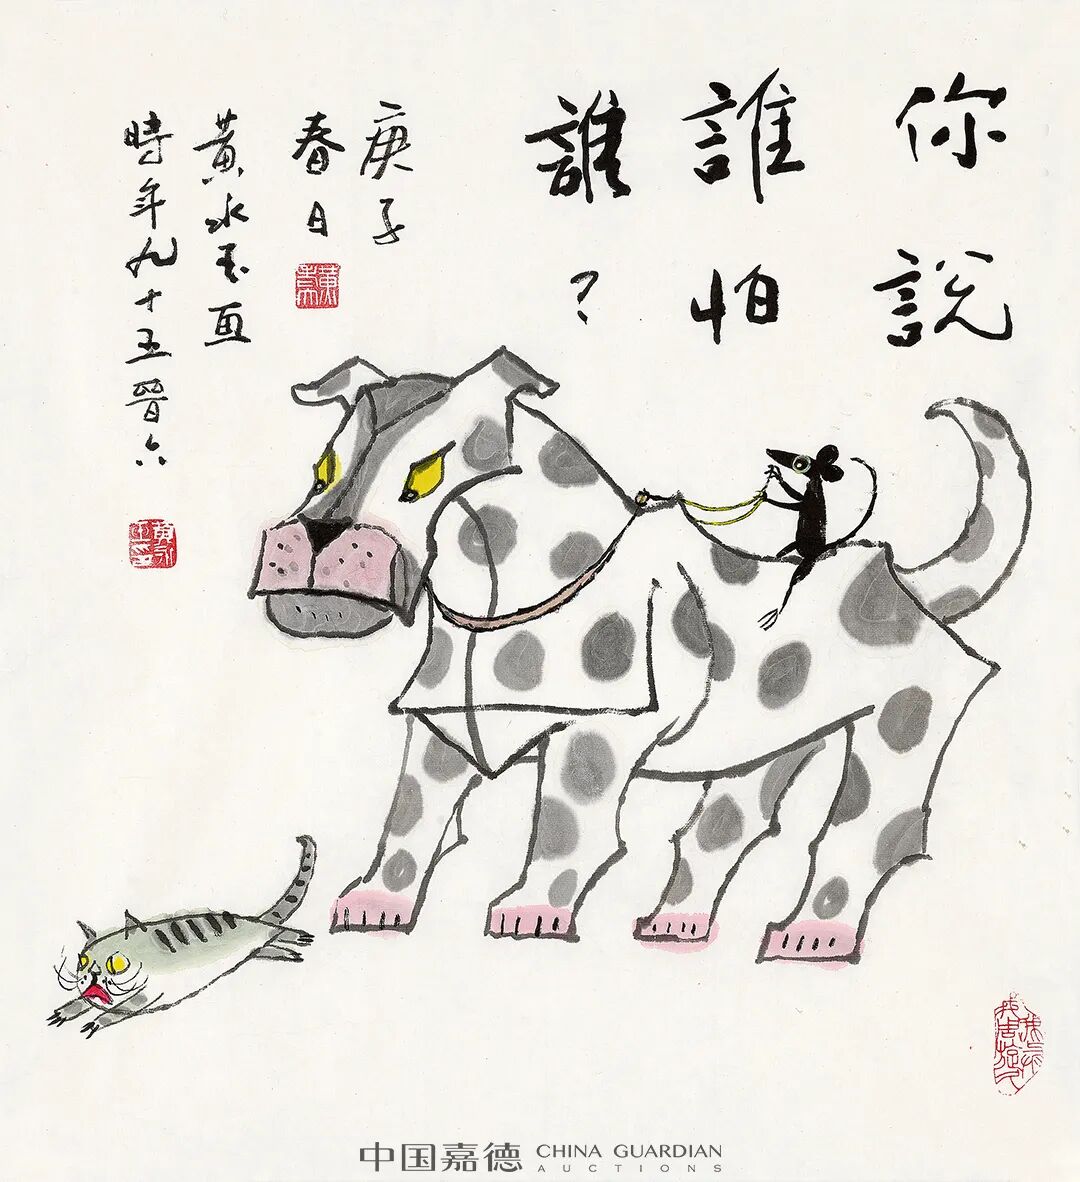 你說
誰怕
誰？
庚子
春日
黃永玉画
時年九十五晉六
中国嘉德
CHINA GUARDIAN
AUCTIONS